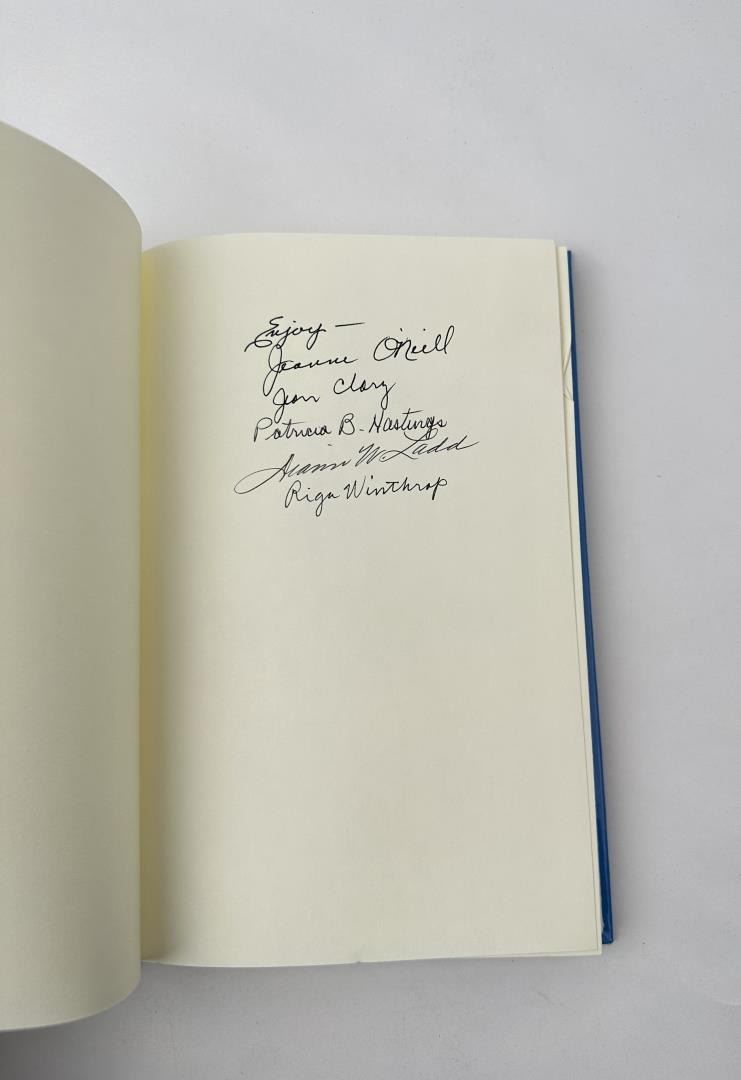 Enjoy —
Joanne O'Neill
Jean Clary
Patricia B. Hastings
W. Ladd
Riga Winthrop